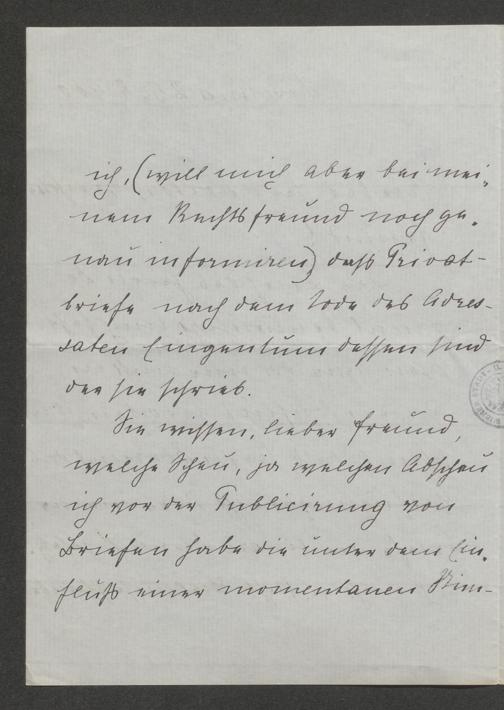 ich, (will mich aber bei mei-
nem Rechtsfreund noch ge-
nau informiren) daß Privat-
briefe nach dem Tode des Adres-
saten Eingentum dessen sind
der sie schrieb.
Sie wissen, lieber Freund,
welche Scheu, ja welchen Abscheu
ich vor der Publicirung von
Briefen habe die unter dem Ein-
fluß einer momentanen Stim-